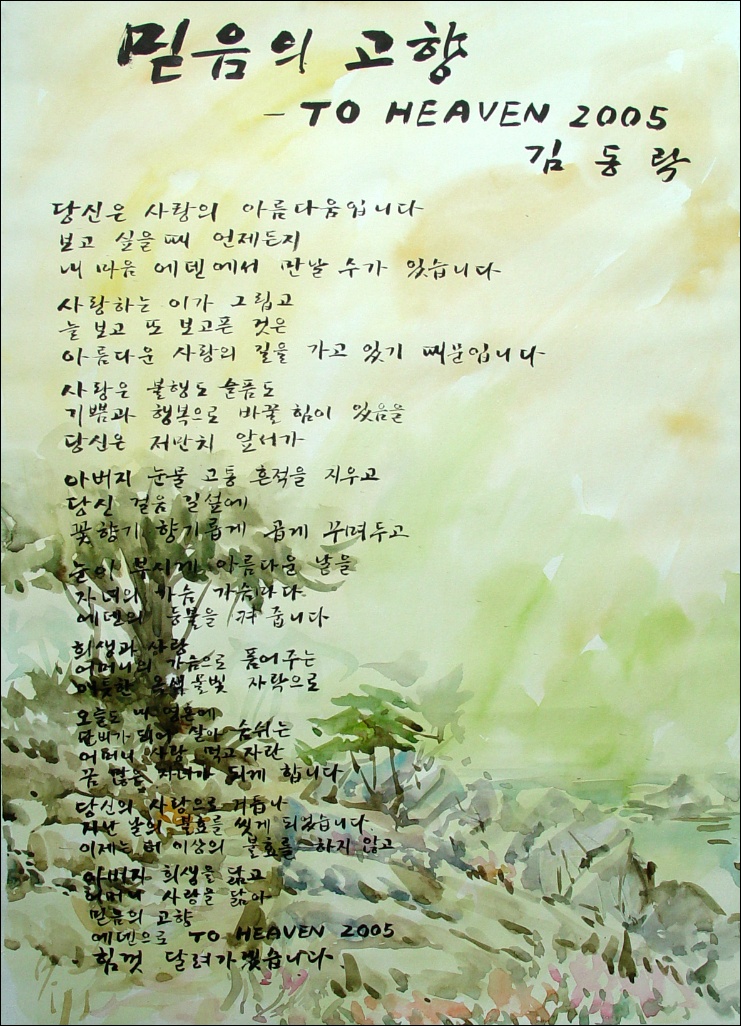 믿음의 고향
- TO HEAVEN 2005
김 동 락
당신은 사랑의 아름다움입니다
보고 싶을 때 언제든지
내 마음 에덴에서 만날 수가 있습니다
사랑하는 이가 그립고
늘 보고 또 보고픈 것은
아름다운 사랑의 길을 가고 있기 때문입니다
사랑은 불행도 슬픔도
기쁨과 행복으로 바꿀 힘이 있음을
당신은 저만치 앞서가
아버지 눈물 고통 흔적을 지우고
당신 걸음 길섶에
꽃향기 향기롭게 곱게 꾸며두고
눈이 부시게 아름다운 날을
자녀의 가슴 가슴마다
에덴의 등불을 켜 줍니다
희생과 사랑
어머니의 가슴으로 품어주는
옥색 물빛 자락으로
오늘도 내 영혼에
단비가 되어 살아 숨쉬는
어머니 사랑 먹고 자란
꿈 많은 자녀가 되게 합니다
당신의 사랑으로 거듭나
지난 날의 불효를 씻게 되었습니다
이제는 더 이상의 불효를 하지 않고
아버지 희생을 닮고
어머니 사랑을 닮아
믿음의 고향
에덴으로 TO HEAVEN 2005
힘껏 달려가겠습니다